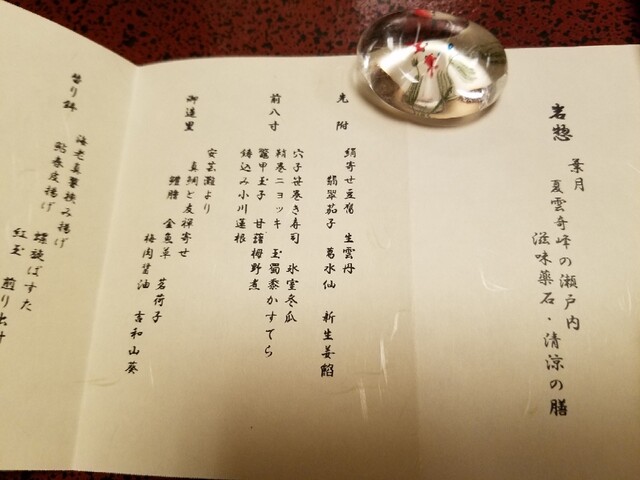 岩惣
葉月
夏雲奇峰の瀬戸内
滋味薬石・清涼の膳
先附
絹寄せ豆腐 生雲丹
翡翠茄子 葛水仙 新生姜餡
前八寸
穴子笹巻き寿司 氷室冬瓜
鞘巻ニョッキ 玉蜀黍かすてら
鼈甲玉子 甘藷梅野煮
鋳込み小川蓮根
御造里
安芸灘より
真鯛と友禅寄せ
鱧膾 金魚草 茗荷子
梅肉醤油 吉和山葵
替り鉢
海老真薯挟み揚げ
鮎春皮揚げ
螺旋ぱすた
紅玉 煎り出汁